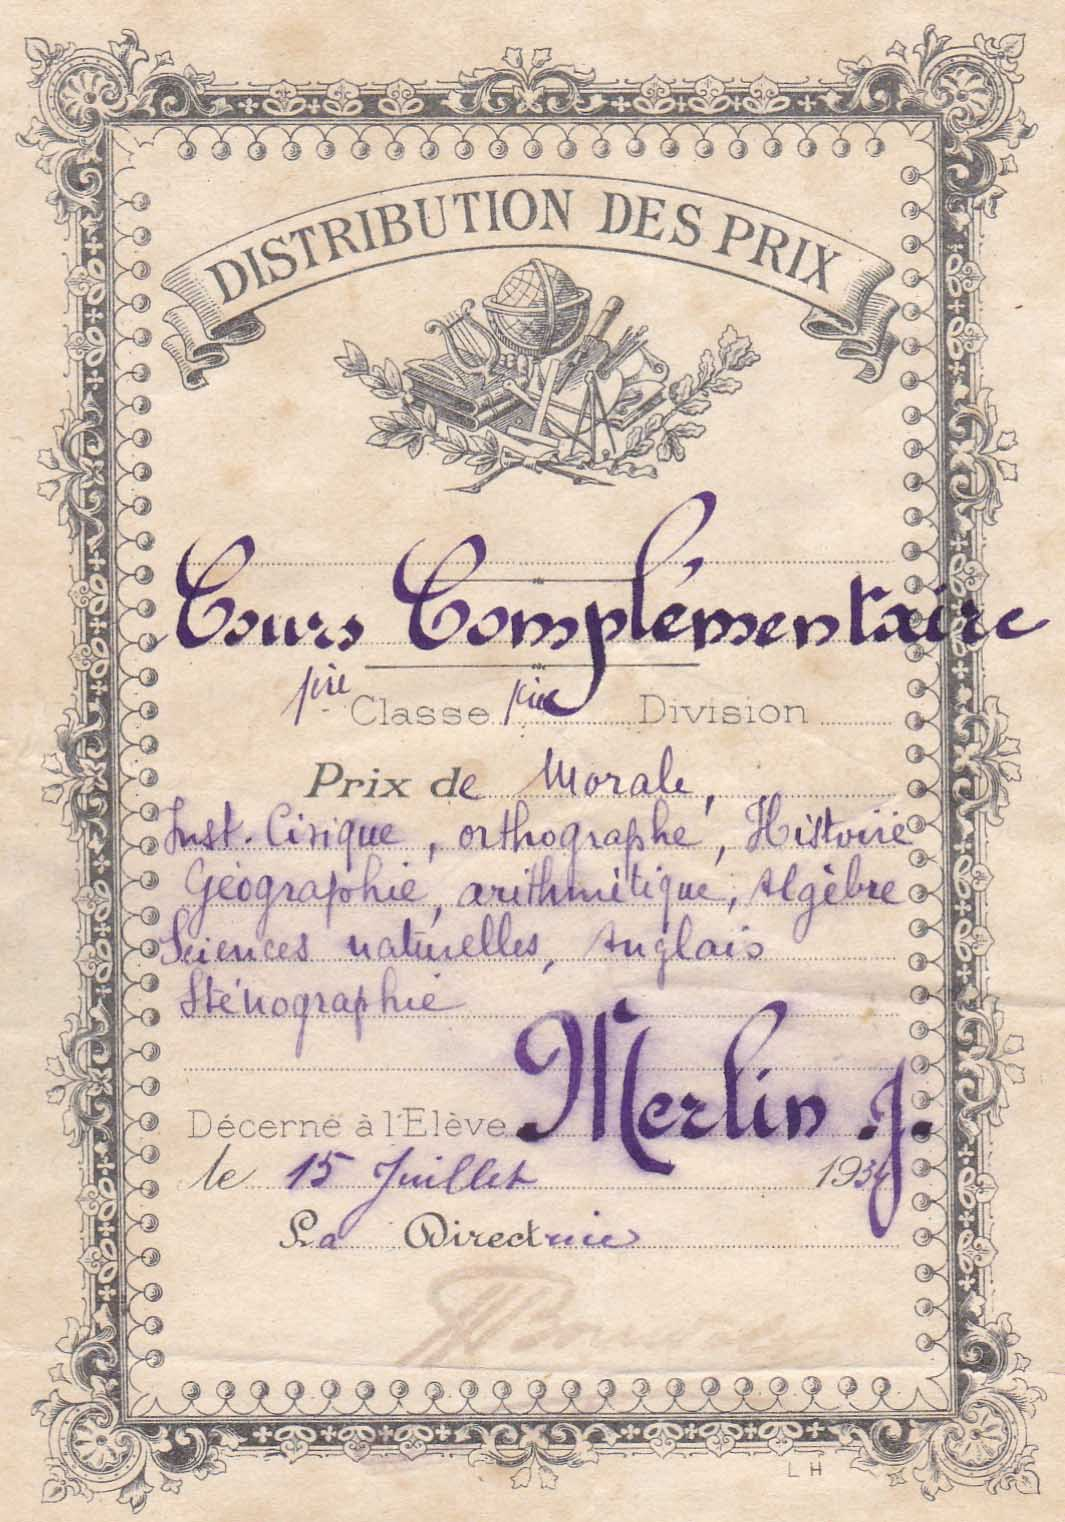 DISTRIBUTION DES PRIX
Cours Complémentaire
1ère Classe 1ère Division
Prix de Morale,
Inst. Civique, orthographe, Histoire
Géographie, arithmétique, Algèbre
Sciences naturelles, Anglais
Sténographie
Décerné à l'Elève Merlin J.
le 15 Juillet 1934
La Directrice
L H